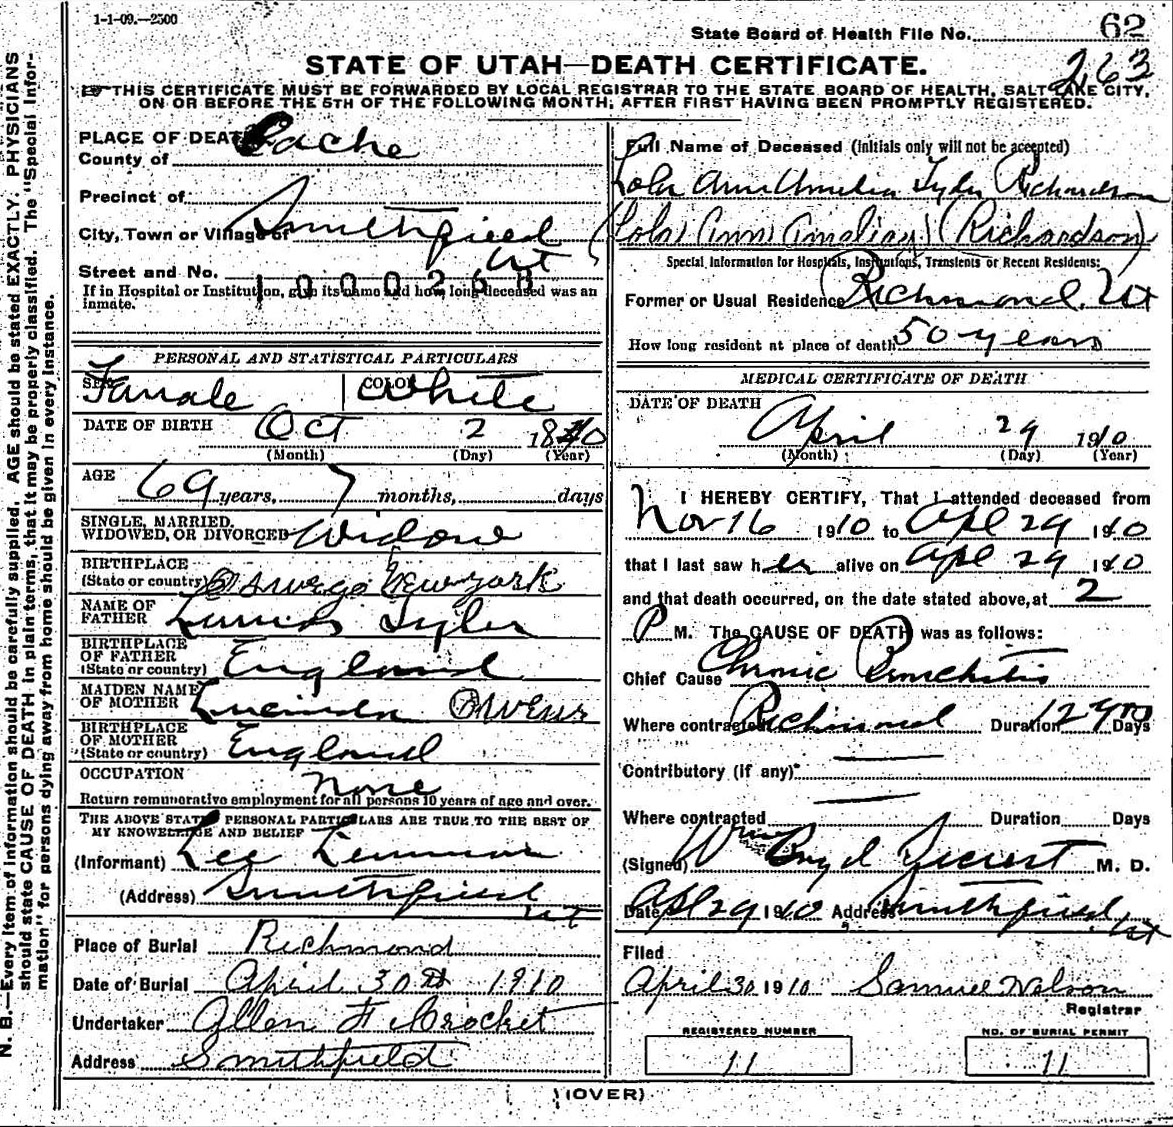 1-1-09.—2500
State Board of Health File No. 62
263
STATE OF UTAH—DEATH CERTIFICATE.
THIS CERTIFICATE MUST BE FORWARDED BY LOCAL REGISTRAR TO THE STATE BOARD OF HEALTH, SALT LAKE CITY,
ON OR BEFORE THE 5TH OF THE FOLLOWING MONTH, AFTER FIRST HAVING BEEN PROMPTLY REGISTERED.
N. B.—Every item of information should be carefully supplied. AGE should be stated EXACTLY. PHYSICIANS
should state CAUSE OF DEATH in plain terms, that it may be properly classified. The "Special Infor-
mation" for persons dying away from home should be given in every instance.
PLACE OF DEATH
County of Cache
Precinct of
City, Town or Village of Smithfield
Ut
Street and No.
1000268
If in Hospital or Institution, give its name and how long deceased was an
inmate.
PERSONAL AND STATISTICAL PARTICULARS
SEX Female COLOR White
DATE OF BIRTH Oct 2 1840
(Month) (Day) (Year)
AGE 69 years, 7 months, days
SINGLE, MARRIED,
WIDOWED, OR DIVORCED Widow
BIRTHPLACE
(State or country) Oswego New York
NAME OF
FATHER Tyler
BIRTHPLACE
OF FATHER
(State or country) England
MAIDEN NAME
OF MOTHER Owens
BIRTHPLACE
OF MOTHER
(State or country) England
OCCUPATION None
Return remunerative employment for all persons 10 years of age and over.
THE ABOVE STATED PERSONAL PARTICULARS ARE TRUE TO THE BEST OF
MY KNOWELDGE AND BELIEF
(Informant) Lee Lemmon
(Address) Smithfield
Ut
Place of Burial Richmond
Date of Burial April 30th 1910
Undertaker Allen F Crocket
Address Smithfield
Full Name of Deceased (initials only will not be accepted)
Lola Ann Amelia Tyler Richardson
(Lola) (Ann) (Amelia) (Richardson)
Special Information for Hospitals, Institutions, Transients or Recent Residents:
Former or Usual Residence Richmond, Ut
How long resident at place of death 50 years
MEDICAL CERTIFICATE OF DEATH
DATE OF DEATH
April 29 1910
(Month) (Day) (Year)
I HEREBY CERTIFY, That I attended deceased from
Nov 16 1910 to Apl 29 1910
that I last saw her alive on Apl 29 1910
and that death occurred, on the date stated above, at 2
P M. The CAUSE OF DEATH was as follows:
Chief Cause Chronic Bronchitis
Where contracted Richmond Duration Days
Contributory (if any)
Where contracted Duration Days
(Signed) Wm M. D.
Date Apl 29 1910 Address Smithfield, Ut
Filed
April 30 1910 Samuel Nelson
Registrar
REGISTERED NUMBER
11
NO. OF BURIAL PERMIT
11
(OVER)